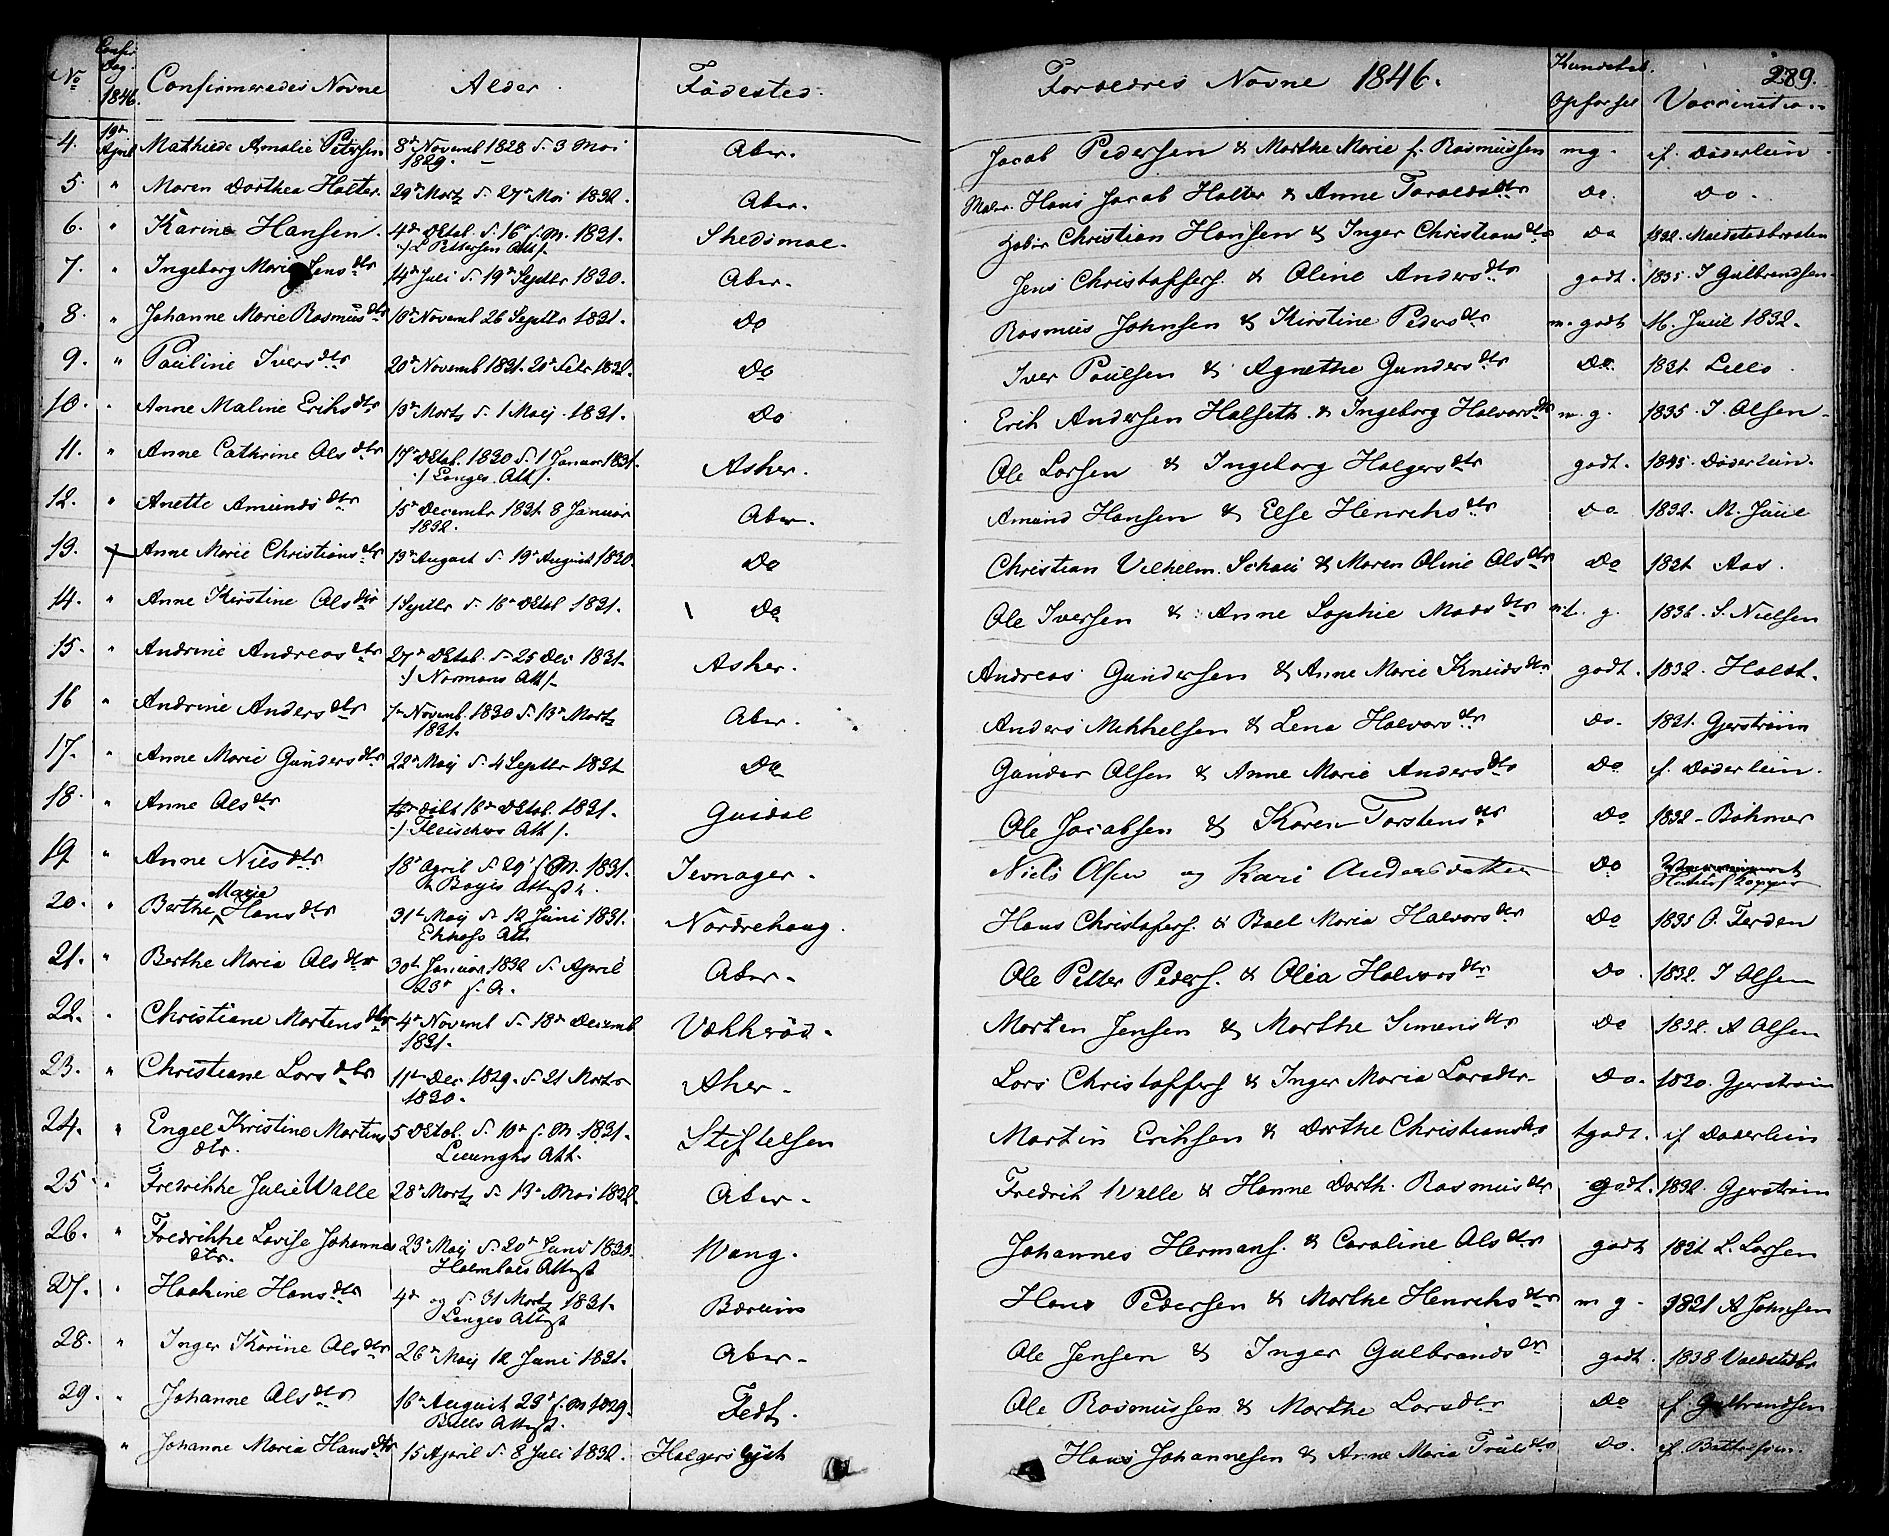 No Confir Dag. 1846. Confirmeredes Navne Alder. Födested. Foraeldres Navne 1846. Kundskab. Opförsel Vaccination 289.
4. 19de April Mathilde Amalie Petersen 8de Novemb 1828 d. 3 Mai Aker. Jacob Pedersen & Marthe Marie f. Rasmussen mg. af. Döderlein
1829.
5. " Maren Dorthea Halter. 29de Martz d. 27de Mai 1832. Aker. Maler. Hans Jacob Halter & Anne Taraldsdtr Do. Do.
6. " Karine Hansen. 4de Octob. d. 16de s. M. 1831. Skedsmoe. Christian Hansen & Inger Christiansdtr Do 1832.
./. L Pettersen Att/.
7. " Ingeborg Marie Jensdtr 14de Juli d. 19de Septbr 1830. Aker. Jens Christoffers. & Oline Andersdtr godt. 1835. J Gulbrandsen.
8. " Johanne Marie Rasmusdtr 10de Novemb 26 Septbr 1831. Do Rasmus Johnsen & Kirstine Pedersdtr m. godt M. Juul 1832.
9. " Pauline Iversdtr 20de Novemb 1831. 20de Febr 1832. Do Iver Paulsen & Agnethe Gundersdtr Do. 1831
10. " Anne Maline Eriksdtr 13de Martz d. 1 Maij 1831. Do Erik Andersen Halseth. & Ingeborg Halvorsdtr m. g. 1835. J. Olsen.
11. " Anne Cathrine Olsdtr 17de Octob. 1830 d. 1 Januar 1831. Asker. Ole Larsen & Ingeborg Holgersdtr godt. 1845. Döderlein.
./ Langes. Att/.
12. " Anette Amundsdtr 15de Decembr 1831 8 Januar Aker. Amund Hansen & Else Henriksdtr Do 1832. M. Juul
1832.
13. Anne Marie Christiansdtr 13de August d. 19de August 1830. Do Christian Vilhelm. Schou & Maren Oline Olsdtr Do 1831 Aas.
14. " Anne Kirstine Olsdtr 1 Septbr d. 16de Octob 1831. Do Ole Iversen & Anne Sophie Madsdtr mt. g. 1836. S. Nielsen
15. " Andrine Andreasdtr 27de Octob. d. 25 Dec 1831. Asker. Andreas Gundersen & Anne Marie Knudsdtr godt. 1832. Holst.
./ Normans Att/.
16 " Andrine Andersdtr 7de Novemb. 1830 d. 13de Martz Aker. Anders Mikkelsen & Lena Halvorsdtr Do. 1831. Gjerström
1831.
17. " Anne Marie Gundersdtr 22de Maij d. 4 Septbr 1831 Do Gunder Olsen & Anne Marie Andersdtr Do af. Döderlein.
18. " Anne Olsdtr döbt 16de Octob. 1831. Gusdal Ole Jacobsen & Karen Torstensdtr Do 1832. Böhmer
./ Fleischers Att/.
19. " Anne Nielsdtr 18de April d. 29de s. M. 1831. Jevnager. Niels Olsen og Kari Andersdatter Do
Attest
20. " Berthe Marie Hansdtr 31te Maij d. 12 Juni 1831. Nordrehaug. Hans Christofers. & Boel Maria Halvorsdtr Do 1835 O. Ferden
Att
21. " Berthe Maria Olsdtr 30te Januar 1832 d. April Aker. Ole Petter Peders. & Olia Halvorsdtr Do. 1832. J Olsen
23de s. A.
22. " Christiane Mortensdtr 4de Novemb d. 18de Decemb Morten Jensen & Marthe Simensdtr Do 1832. A Olsen
1831.
23. " Christiane Larsdtr 11te Dec 1829. d. 21 Martz Aker. Lars Christoffers & Inger Maria Larsdtr. Do. 1830. Gjerström
1830.
24. " Engel Kirstine Martins 5 Octob. d. 10de s. M. 1831. Stiftelsen Martin Eriksen & Dorthe Christiansdtr tgodt. af Döderlein
dtr. Att.
25 " Fredrikke Julie Walle 28de Martz d. 13de Mai 1832. Aker. Fredrik Walle & Hanne Dorth. Rasmusdtr godt. 1832. Gjerström
26. " Fredrikke Lovise Johannes 23de Maij d. 20de Juni 1830. Wang. Johannes Hermans. & Caroline Olsdtr godt 1831 L. Larsen
dtr. Holmboes Attest
27. " Haakine Hansdtr 4de og d. 31 Martz 1831. Baerum Hans Pedersen & Marthe Henriksdtr m g. 1831 A Johnsen
Langes Attest
28. " Inger Karine Olsdtr 26de Maij 12 Juni 1831. Aker. Ole Jensen & Inger Gulbrandsdtr godt. 1838
29. " Johanne Olsdtr 16de August 23de s. M 1829. Fedt. Ole Rasmussen & Marthe Larsdtr Do af. Gulbrandsen
Attest.
" Johanne Maria Hansdtr 15 April d. 8 Juli 1832. Hans Johannesen & Anne Maria Do.